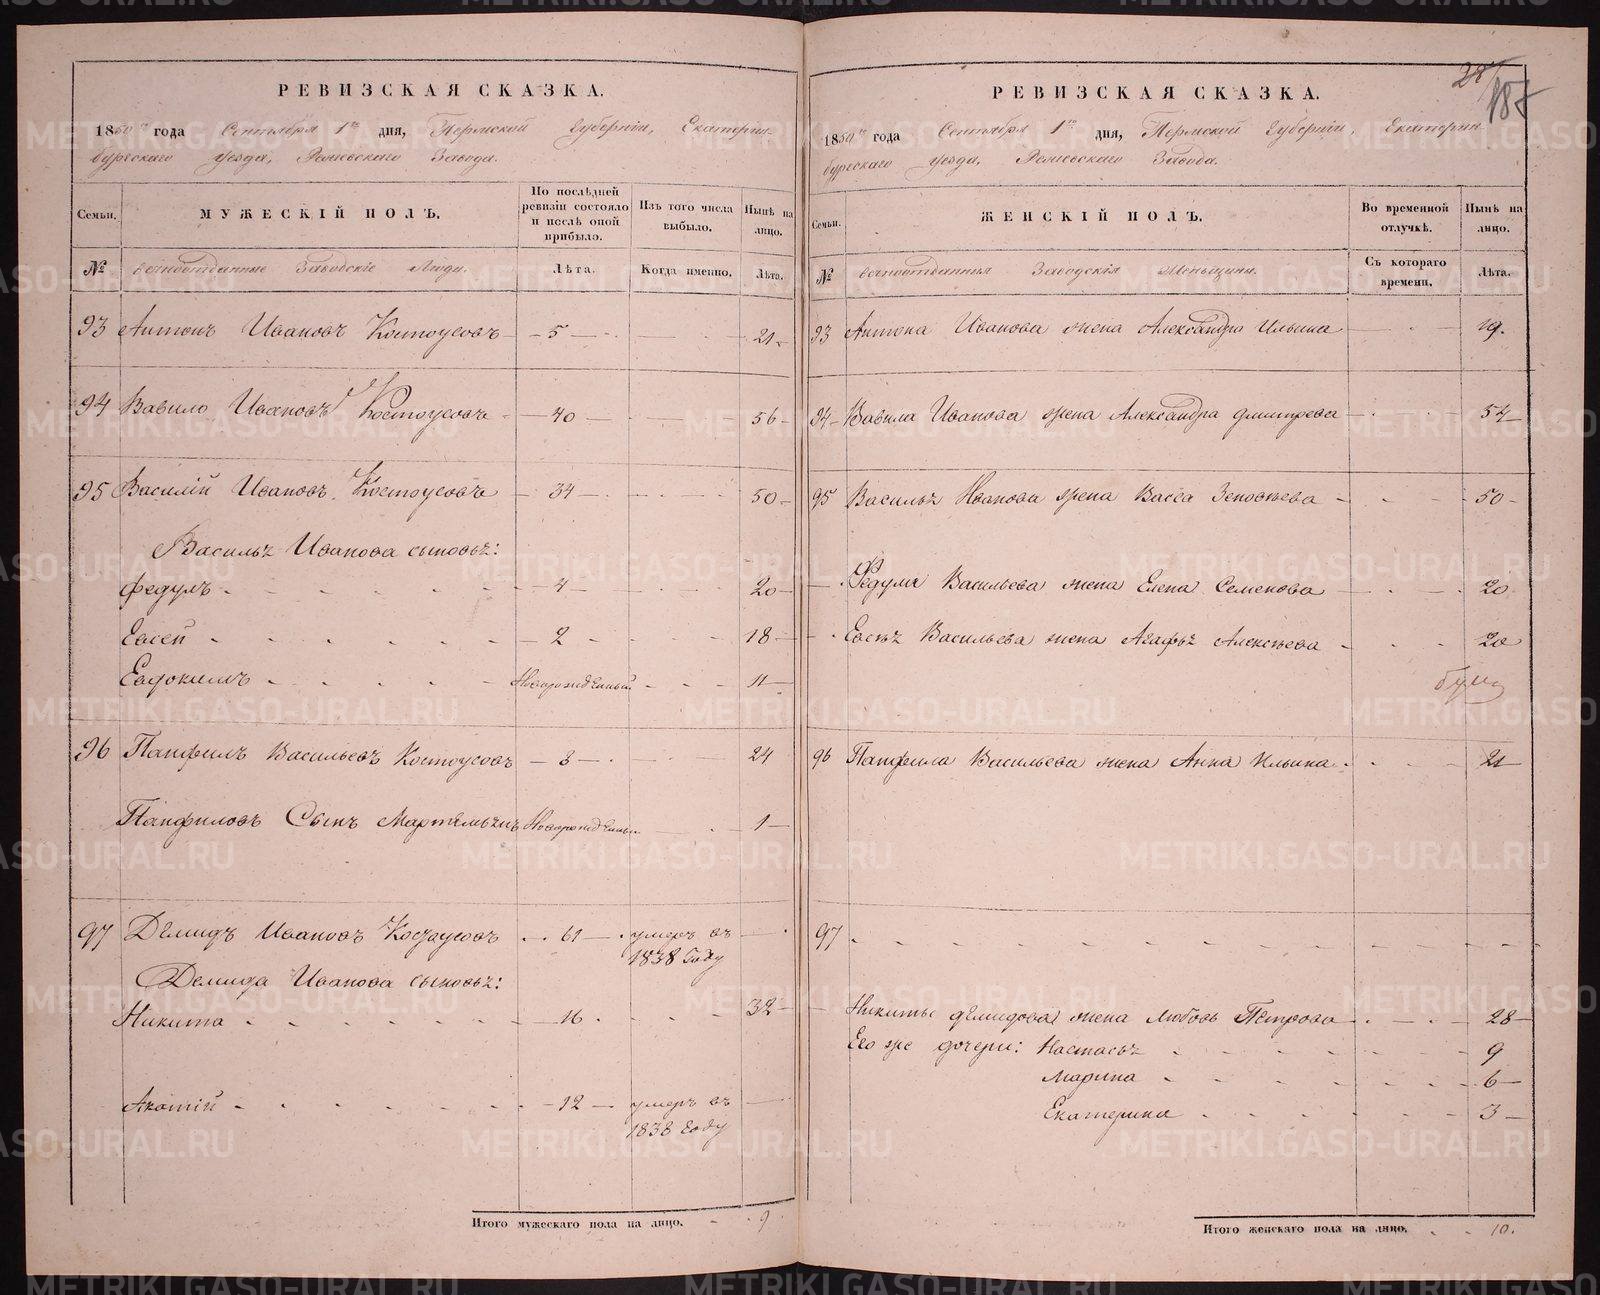 РЕВИЗСКАЯ СКАЗКА.
1850го года Сентября 1го дня, Пермской Губерніи, Екатерин-
бургскаго уезда, Режевскаго Завода.
Семьи. МУЖЕСКІЙ ПОЛЪ. По послѣдней ревизіи состояло и послѣ оной прибыло. Изъ того числа выбыло. Нынѣ на лицо.
№ Заводскіе Люди. Лѣта. Когда именно. Лѣта.
93 Антонъ Ивановъ Костоусовъ 5 21
94 Вавило Ивановъ Костоусовъ 40 56
95 Василій Ивановъ Костоусовъ 34 50
Васильѣ Иванова сыновьѣ:
Федулъ 4 20
Евсей 2 18
Евдокимъ Новорожденный 11
96 Панфилъ Васильевъ Костоусовъ 8 24
Панфиловъ Сынъ Новорожденный 1
97 Демидъ Ивановъ Костоусовъ 61 умеръ въ
1838 Году
Демида Иванова сыновьѣ:
Никита 16 32
12 умеръ въ
1838 Году
Итого мужескаго пола на лицо. 9
28
187
РЕВИЗСКАЯ СКАЗКА.
1850го года Сентября 1го дня, Пермской Губерніи, Екатерин-
бургскаго уезда, Режевскаго Завода.
Семьи. ЖЕНСКІЙ ПОЛЪ. Во временной отлучкѣ. Нынѣ на лицо.
№ Заводскія Женьщины. Съ котораго времени. Лѣта.
93 Антона Иванова жена Александра Ильина 19.
94 Вавила Иванова жена Александра Дмитрева 54
95 Васильѣ Иванова жена Васса 50
Федула Васильева жена Елена Семенова 20
Евсѣѣ Васильева жена Агафьѣ Алексѣева 20
96 Панфила Васильева жена Анна Ильина 21
97
Никиты Демидова жена Любовь Петрова 28
Его же дочери: Настасьѣ 9
Марина 6
Екатерина 3
Итого женскаго пола на лицо. 10.
METRIKI.GASO-URAL.RU